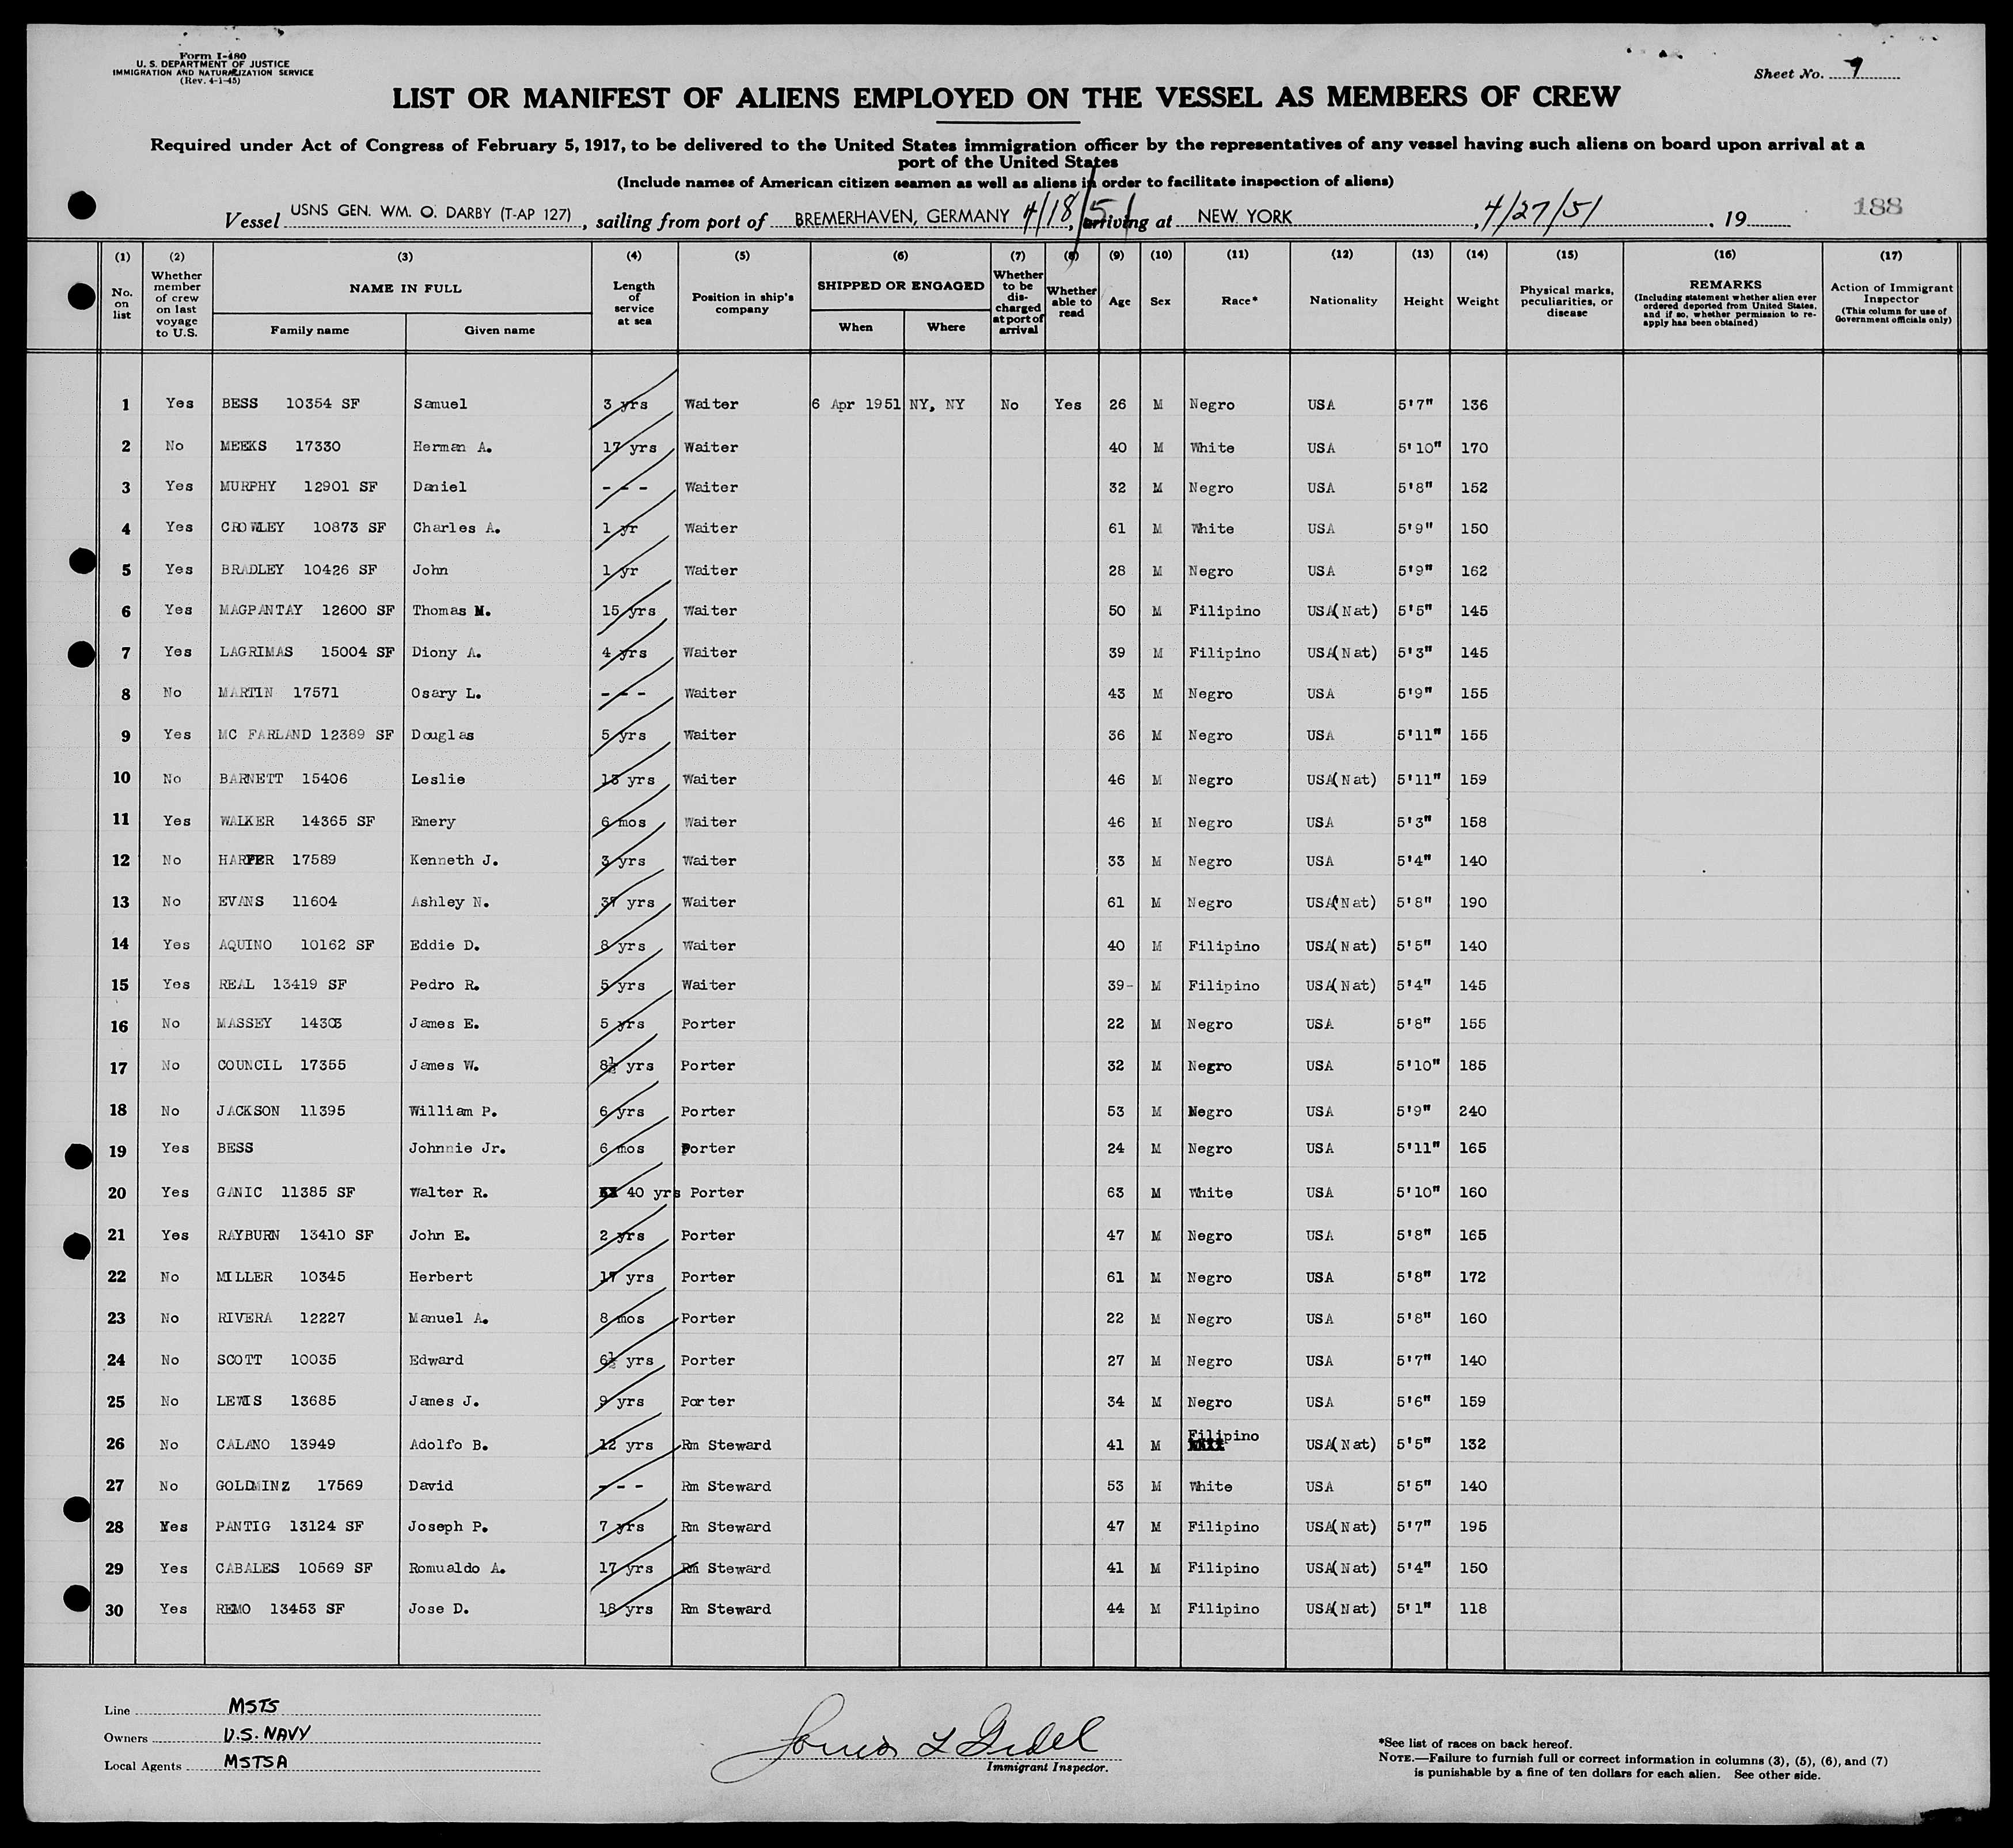 Form I-480
U. S. DEPARTMENT OF JUSTICE
IMMIGRATION AND NATURALIZATION SERVICE
(Rev. 4-1-45)
Sheet No.
LIST OR MANIFEST OF ALIENS EMPLOYED ON THE VESSEL AS MEMBERS OF CREW
Required under Act of Congress of February 5, 1917, to be delivered to the United States immigration officer by the representatives of any vessel having such aliens on board upon arrival at a
port of the United States
(Include names of American citizen seamen as well as aliens in order to facilitate inspection of aliens)
Vessel USNS GEN. WM. O. DARBY (T-AP 127), sailing from port of BREMERHAVEN, GERMANY 4/18/51, arriving at NEW YORK, 4/27/51, 19
188
(1) (2) (3) (4) (5) (6) (7) (8) (9) (10) (11) (12) (13) (14) (15) (16) (17)
No. on list
Whether member of crew on last voyage to U.S.
NAME IN FULL
Family name Given name
Length of service at sea
Position in ship's company
SHIPPED OR ENGAGED
When Where
Whether to be discharged at port of arrival
Whether able to read
Age
Sex
Race*
Nationality
Height
Weight
Physical marks, peculiarities, or disease
REMARKS
(Including statement whether alien ever ordered deported from United States, and if so, whether permission to re-apply has been obtained)
Action of Immigrant Inspector
(This column for use of Government officials only)
1 Yes BESS 10354 SF Samuel 3 yrs Waiter 6 Apr 1951 NY, NY No Yes 26 M Negro USA 5'7" 136
2 No MEEKS 17330 Herman A. 17 yrs Waiter 40 M White USA 5'10" 170
3 Yes MURPHY 12901 SF Daniel - - - Waiter 32 M Negro USA 5'8" 152
4 Yes CROWLEY 10873 SF Charles A. 1 yr Waiter 61 M White USA 5'9" 150
5 Yes BRADLEY 10426 SF John 1 yr Waiter 28 M Negro USA 5'9" 162
6 Yes MAGPANTAY 12600 SF Thomas M. 15 yrs Waiter 50 M Filipino USA(Nat) 5'5" 145
7 Yes LAGRIMAS 15004 SF Diony A. 4 yrs Waiter 39 M Filipino USA(Nat) 5'3" 145
8 No MARTIN 17571 Osary L. - - - Waiter 43 M Negro USA 5'9" 155
9 Yes MC FARLAND 12389 SF Douglas 5 yrs Waiter 36 M Negro USA 5'11" 155
10 No BARNETT 15406 Leslie 13 yrs Waiter 46 M Negro USA(Nat) 5'11" 159
11 Yes WALKER 14365 SF Emery 6 mos Waiter 46 M Negro USA 5'3" 158
12 No HARPER 17589 Kenneth J. 3 yrs Waiter 33 M Negro USA 5'4" 140
13 No EVANS 11604 Ashley N. 37 yrs Waiter 61 M Negro USA(Nat) 5'8" 190
14 Yes AQUINO 10162 SF Eddie D. 8 yrs Waiter 40 M Filipino USA(Nat) 5'5" 140
15 Yes REAL 13419 SF Pedro R. 5 yrs Waiter 39- M Filipino USA(Nat) 5'4" 145
16 No MASSEY James E. 5 yrs Porter 22 M Negro USA 5'8" 155
17 No COUNCIL 17355 James W. 8½ yrs Porter 32 M Negro USA 5'10" 185
18 No JACKSON 11395 William P. 6 yrs Porter 53 M Negro USA 5'9" 240
19 Yes BESS Johnnie Jr. 6 mos Porter 24 M Negro USA 5'11" 165
20 Yes GANIC 11385 SF Walter R. 40 yrs Porter 63 M White USA 5'10" 160
21 Yes RAYBURN 13410 SF John E. 2 yrs Porter 47 M Negro USA 5'8" 165
22 No MILLER 10345 Herbert 17 yrs Porter 61 M Negro USA 5'8" 172
23 No RIVERA 12227 Manuel A. 8 mos Porter 22 M Negro USA 5'8" 160
24 No SCOTT 10035 Edward 6½ yrs Porter 27 M Negro USA 5'7" 140
25 No LEWIS 13685 James J. 9 yrs Porter 34 M Negro USA 5'6" 159
26 No CALANO 13949 Adolfo B. 12 yrs Rm Steward 41 M Filipino USA(Nat) 5'5" 132
27 No GOLDMINZ 17569 David - - - Rm Steward 53 M White USA 5'5" 140
28 Yes PANTIG 13124 SF Joseph P. 7 yrs Rm Steward 47 M Filipino USA(Nat) 5'7" 195
29 Yes CABALES 10569 SF Romualdo A. 17 yrs Rm Steward 41 M Filipino USA(Nat) 5'4" 150
30 Yes REMO 13453 SF Jose D. 18 yrs Rm Steward 44 M Filipino USA(Nat) 5'1" 118
Line MSTS
Owners U.S. NAVY
Local Agents MSTSA
Immigrant Inspector.
*See list of races on back hereof.
NOTE.—Failure to furnish full or correct information in columns (3), (5), (6), and (7)
is punishable by a fine of ten dollars for each alien. See other side.